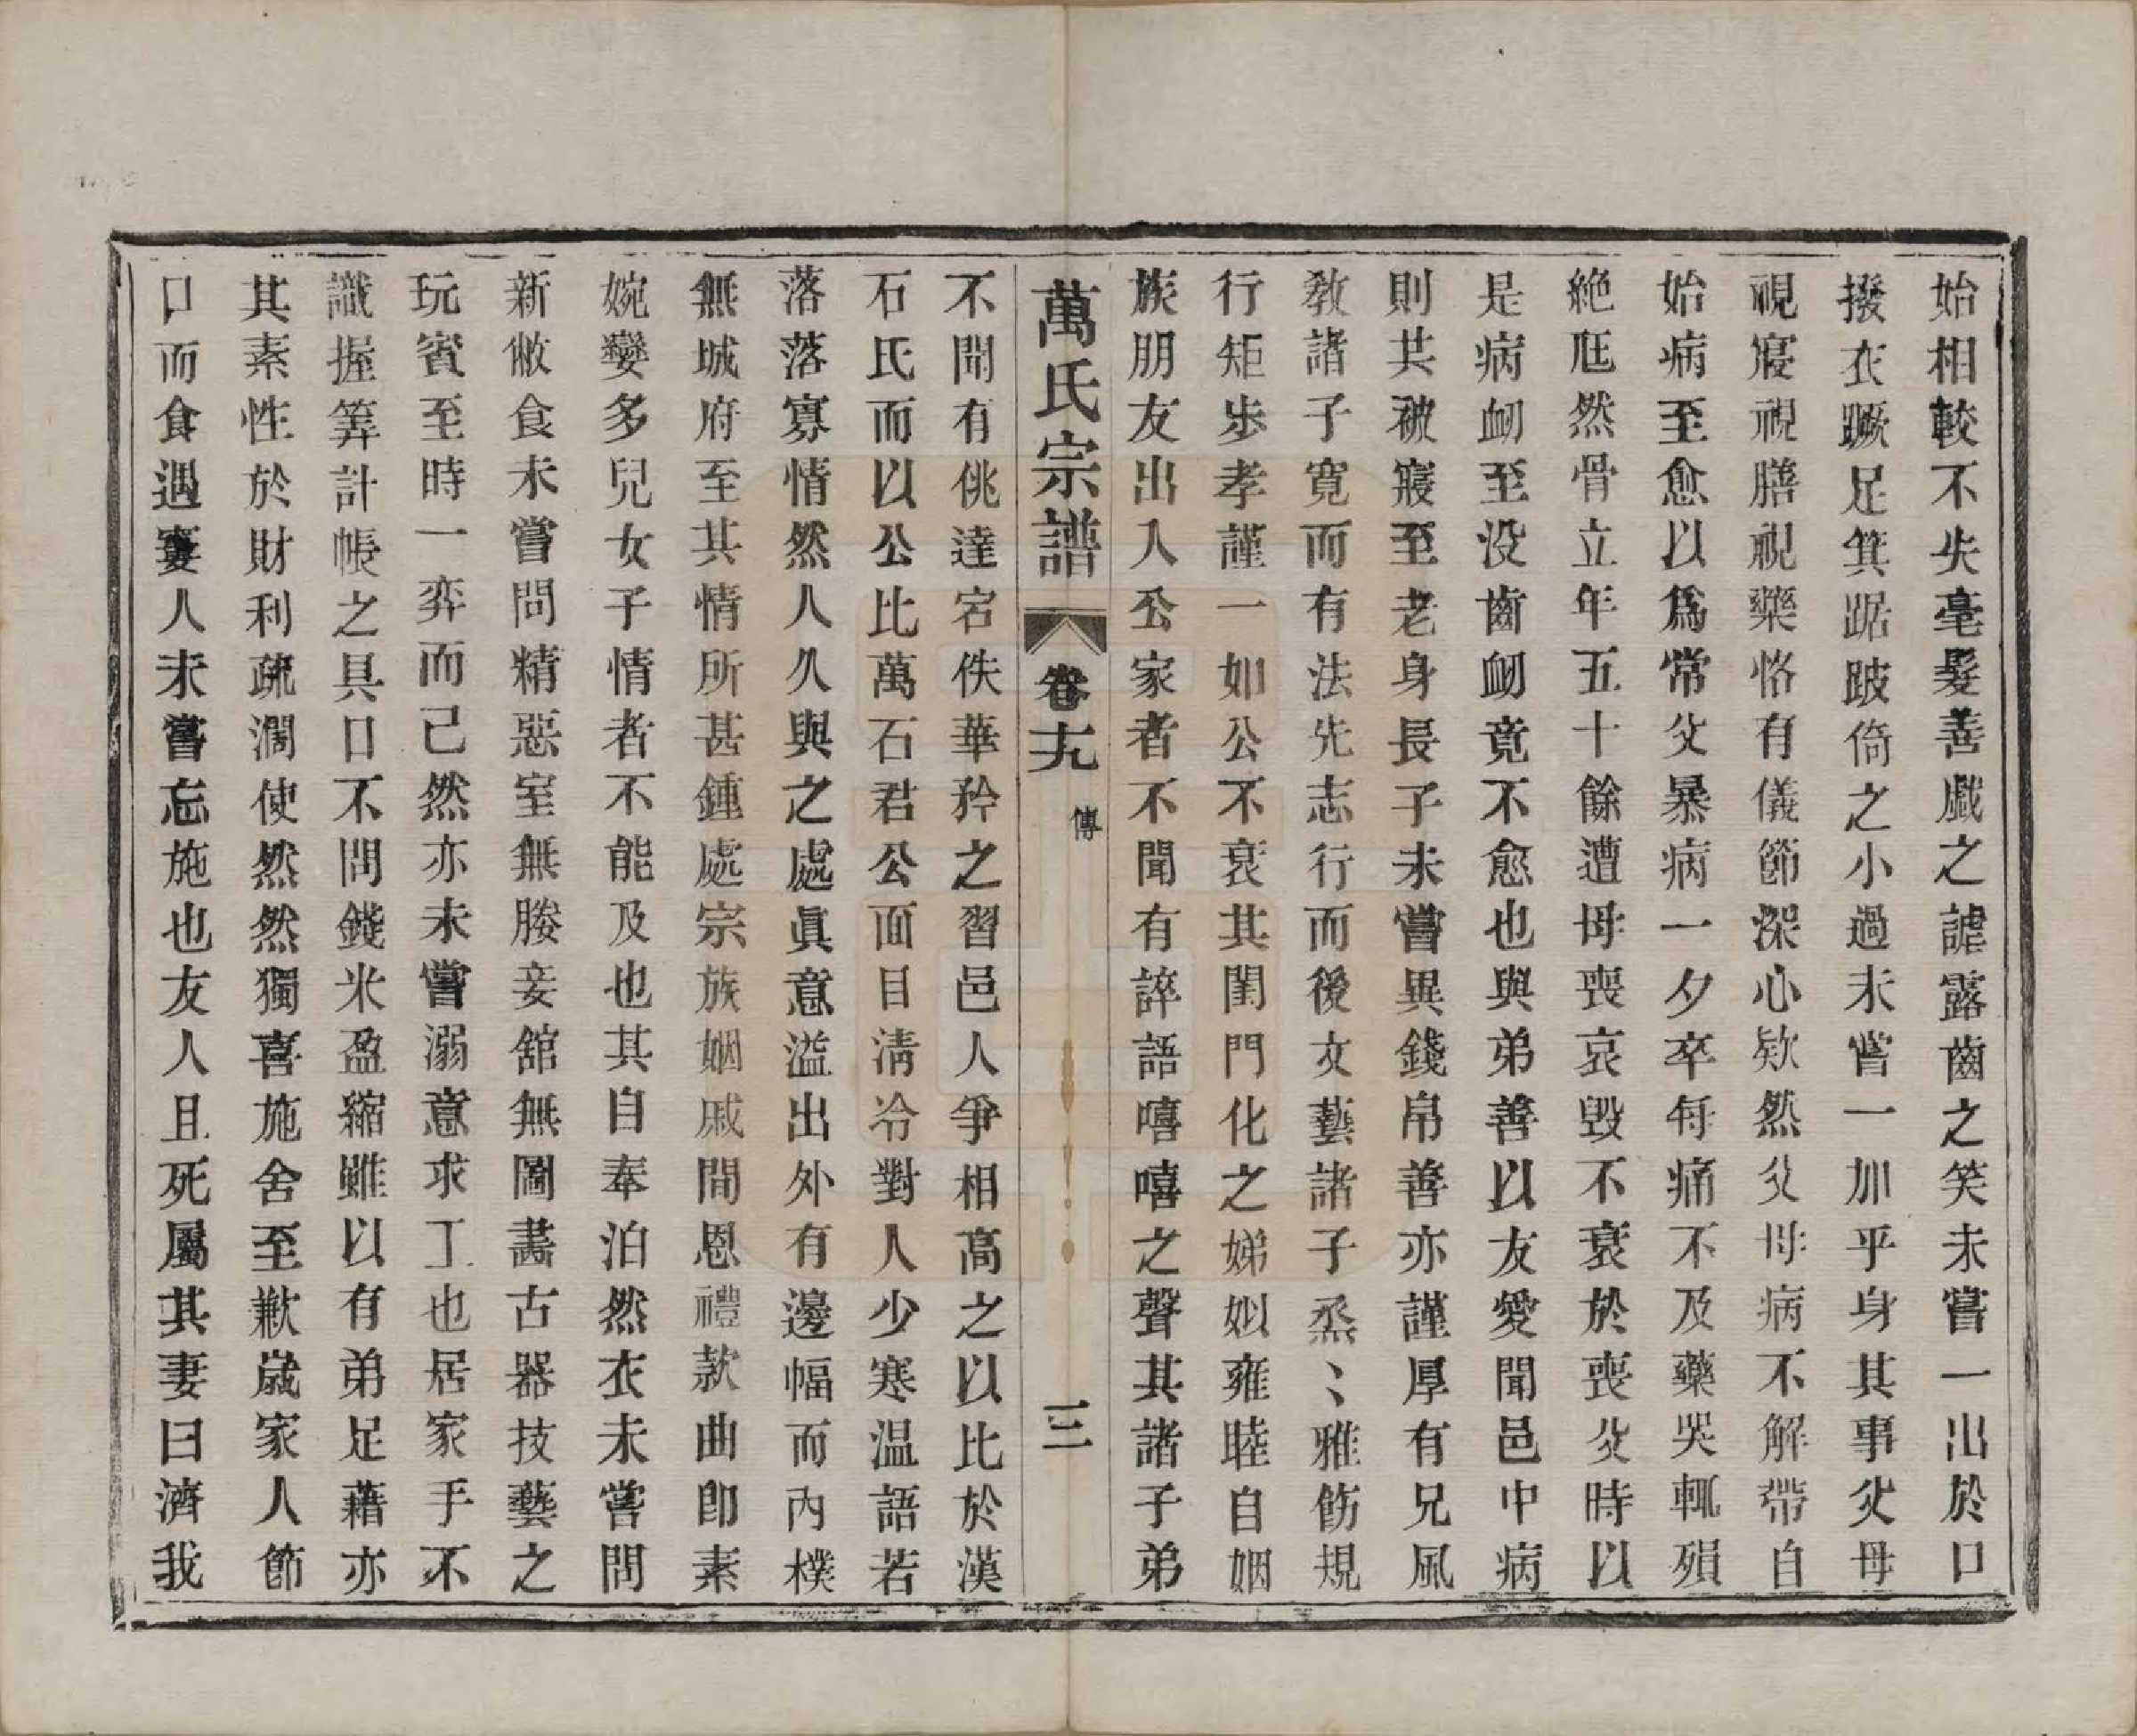 始相較不失毫髮善戲之謔露齒之笑未嘗一出於口
撥衣蹶足箕踞跛倚之小過未嘗一加乎身其事父母
視寢視膳視藥恪有儀節深心欵然父母病不解帶自
始病至愈以爲常父暴病一夕卒每痛不及藥哭輒殞
絶尫然骨立年五十餘遭母喪哀毀不衰於喪父時以
是病衂至没齒衂竟不愈也與弟善以友愛聞邑中病
則共被寢至老身長子未嘗異錢帛善亦謹厚有兄風
教諸子寛而有法先志行而後文藝諸子烝〻雅飭規
行矩步孝謹一如公不衰其閨門化之娣姒雍睦自姻
族朋友出入公家者不聞有誶語嘻嘻之聲其諸子弟
萬氏宗譜 卷十九 傳 三
不聞有佻達宕佚華矜之習邑人爭相高之以比於漢
石氏而以公比萬石君公面目清冷對人少寒温語若
落落寡情然人久與之處眞意溢出外有邊幅而内樸
無城府至其情所甚鍾處宗族姻戚間恩禮款曲卽素
婉孌多兒女子情者不能及也其自奉泊然衣未嘗問
新敝食未嘗問精惡室無媵妾舘無圖畵古器技藝之
玩賓至時一弈而已然亦未嘗溺意求工也居家手不
識握筭計帳之具口不問錢米盈縮雖以有弟足藉亦
其素性於財利疏濶使然然獨喜施舍至歉歲家人節
口而食遇窶人未嘗忘施也友人且死屬其妻曰濟我